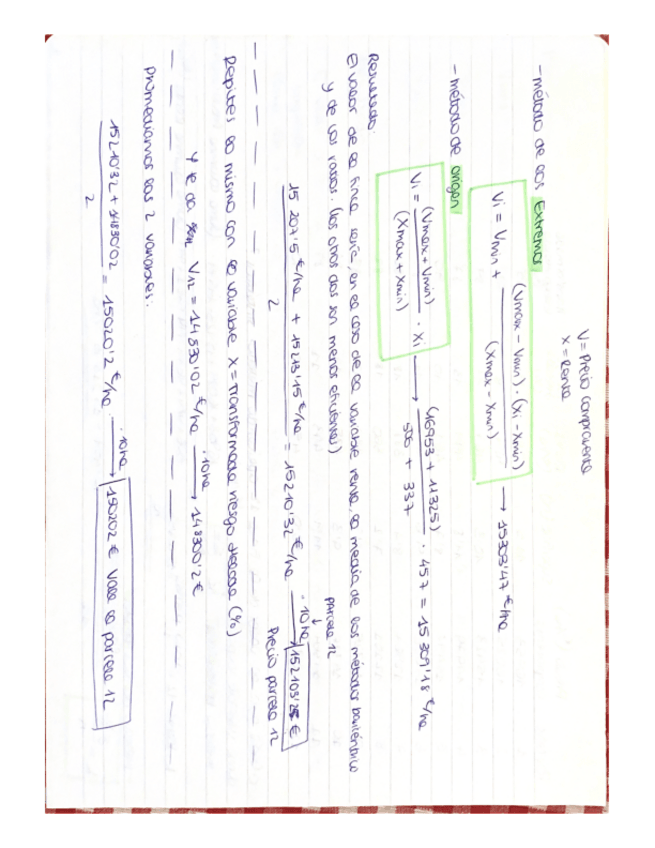 V = Precio compraventa
X = Renta
- método de los Extremos
Vi = Vmin + (Vmax - Vmin) · (Xi - Xmin) / (Xmax - Xmin) → 15303'47 €/ha
- método de origen
Vi = (Vmax + Vmin) / (Xmax + Xmin) · Xi → (16953 + 11325) / 506 + 337 · 457 = 15 309'18 €/ha
Resultado:
El valor de la finca sería, en el caso de la variable renta, la media de los métodos baricéntrico
y de los ratios. (los otros dos son menos eficientes)
parcela 12
15 207'5 €/ha + 15213'15 €/ha / 2 = 15210'32 €/ha · 10ha → 152103'25 €
Precio parcela 12
Repites lo mismo con la variable X = Transformada riesgo helada (%)
y te da V12 = 14830'02 €/ha · 10ha → 148300'2 €
Promediamos las 2 variables:
15210'32 + 14830'02 / 2 = 15020'2 €/ha · 10ha → 150202 € Vale la parcela 12